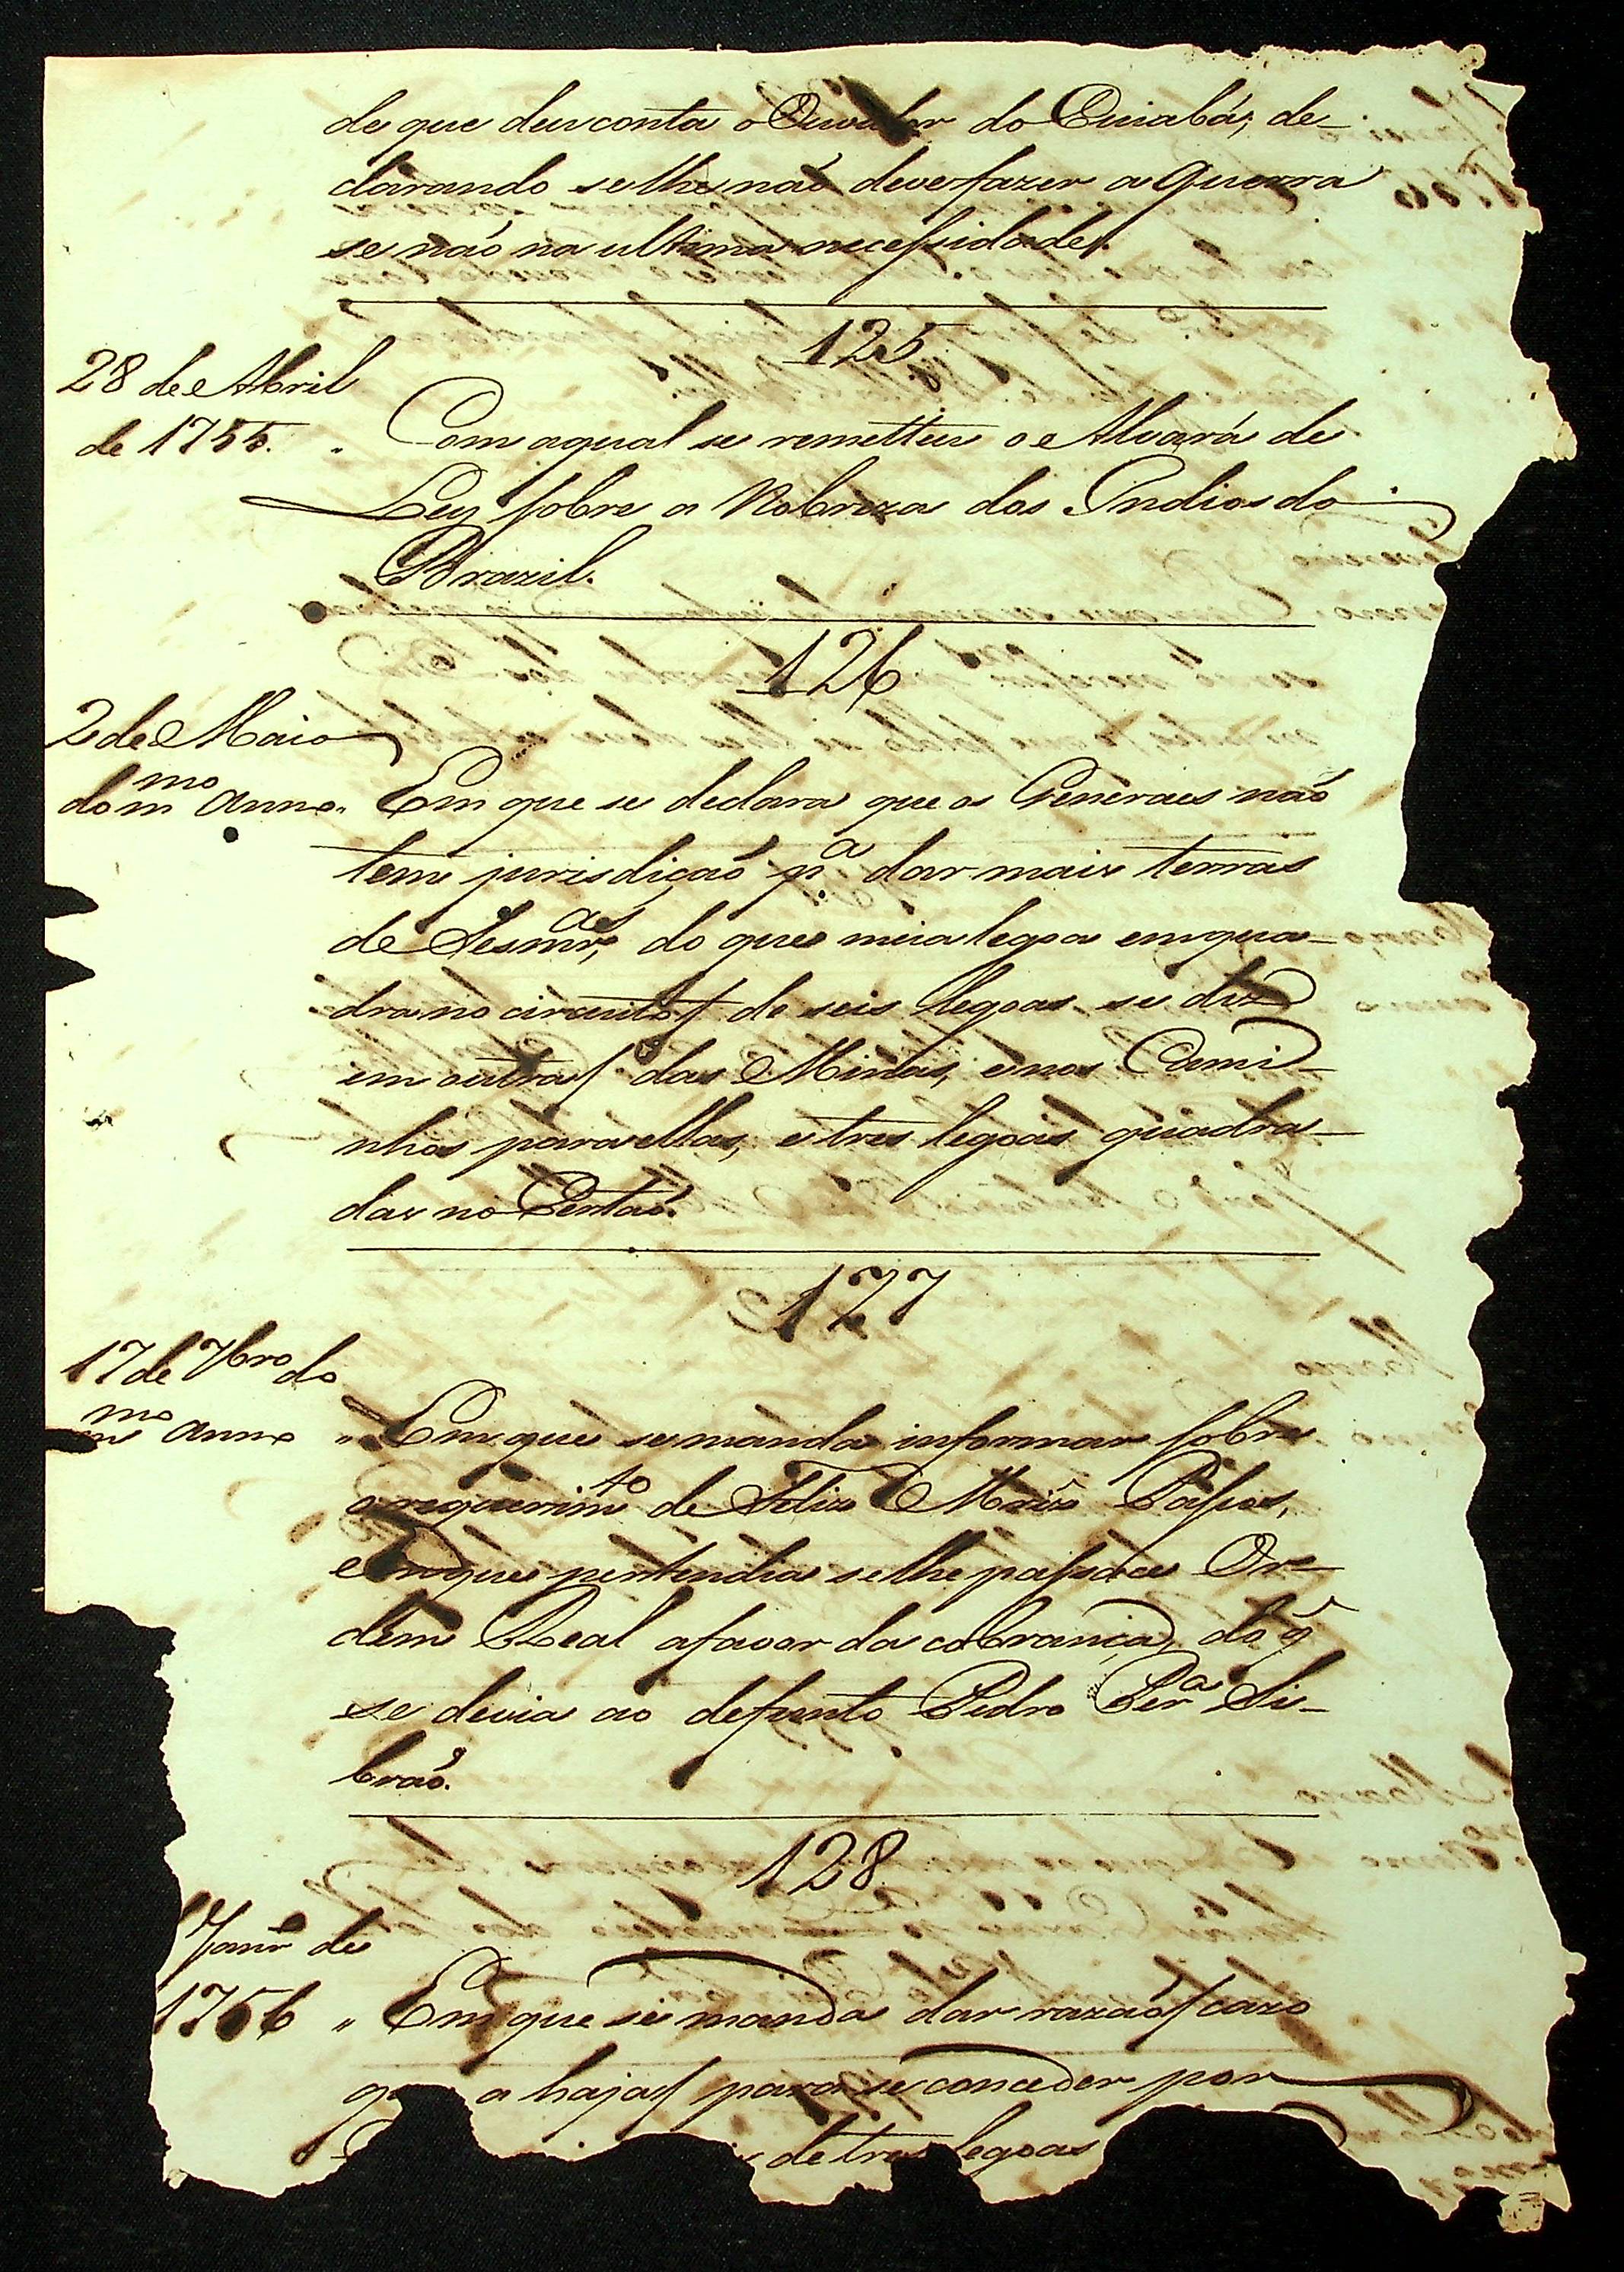 de que deu conta o Ouvidor do Cuiabá; de-
clarando se lhe naõ deve fazer a Guerra
se naõ na ultima necessidade.
125
28 de Abril
de 1755. " Com a qual se remetteu o Alvará de
Ley sobre a Nobreza dos Indios do
Brazil.
126
2 de Maio
do mmo anno " Em que se declara que os Generaes naõ
tem jurisdiçaõ pa dar mais terras
de Sesmras, do que meia legoa em qua-
dra no circuito / de seis legoas se diz
em outra / das Minas, e nos Cami-
nhos para ellas, e tres legoas quadra-
das no Certaõ.
127
17 de 7bro do
mmo anno " Em que se manda informar sobre
o requerimto de Feliz Passos,
em que pertendia se lhe passace Or-
dem Real a favor da cobrança, do q̃
se devia ao defunto Pedro Pera Si-
braõ.
128
Janro de
1756 " Em que se manda dar razaõ / cazo
a haja / para se conceder por
de tres legoas